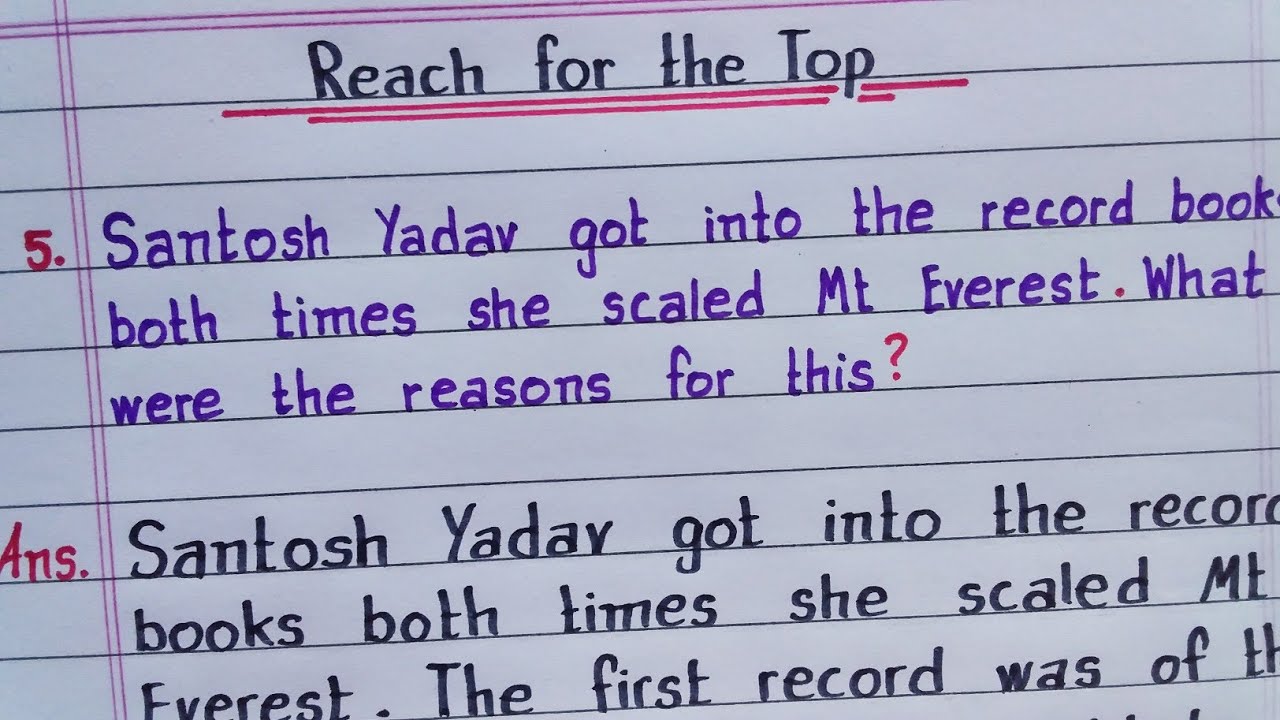 Reach for the Top
5. Santosh Yadav got into the record book
both times she scaled Mt Everest. What
were the reasons for this?
Ans. Santosh Yadav got into the record
books both times she scaled Mt
Everest. The first record was of th